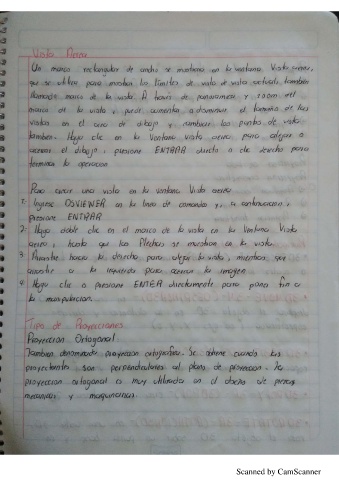 Vista Aerea
Un marco rectangular de ancho se mostrara en la ventana Vista aerea,
que se utiliza para mostrar los límites de vista de vista actual, también
llamado marco de la vista. A través de panoramica y zoom del
marco de la vista, puede aumentar o disminuir el tamaño de las
vistas en el area de dibujo y cambiar los puntos de vista
tambien. Haga clic en la Ventana vista aerea para alejar o
acercar el dibujo, presione ENTRAR directo o clic derecho para
terminar la operacion
Para crear una vista en la ventana Vista aerea
1. Ingrese DSVIEWER en la linea de comandos y, a continuacion,
presione ENTRAR
2. Haga doble clic en el marco de la vista en la Ventana Vista
aerea, hasta que las flechas se muestran en la vista
3. Arrastre hacia la derecha para alejar la vista, mientras que
arrastre a la izquierda para acercar la imagen
4. Haga clic o presione ENTER directamente para poner fin a
la manipulacion.
Tipo de Proyecciones
Proyeccion Ortogonal
Tambien denominada proyeccion ortografica. Se obtiene cuando las
proyectantes son perpendiculares al plano de proyeccion. La
proyeccion ortogonal es muy utilizada en el diseño de piezas
mecanicas y maquinarias.
Scanned by CamScanner